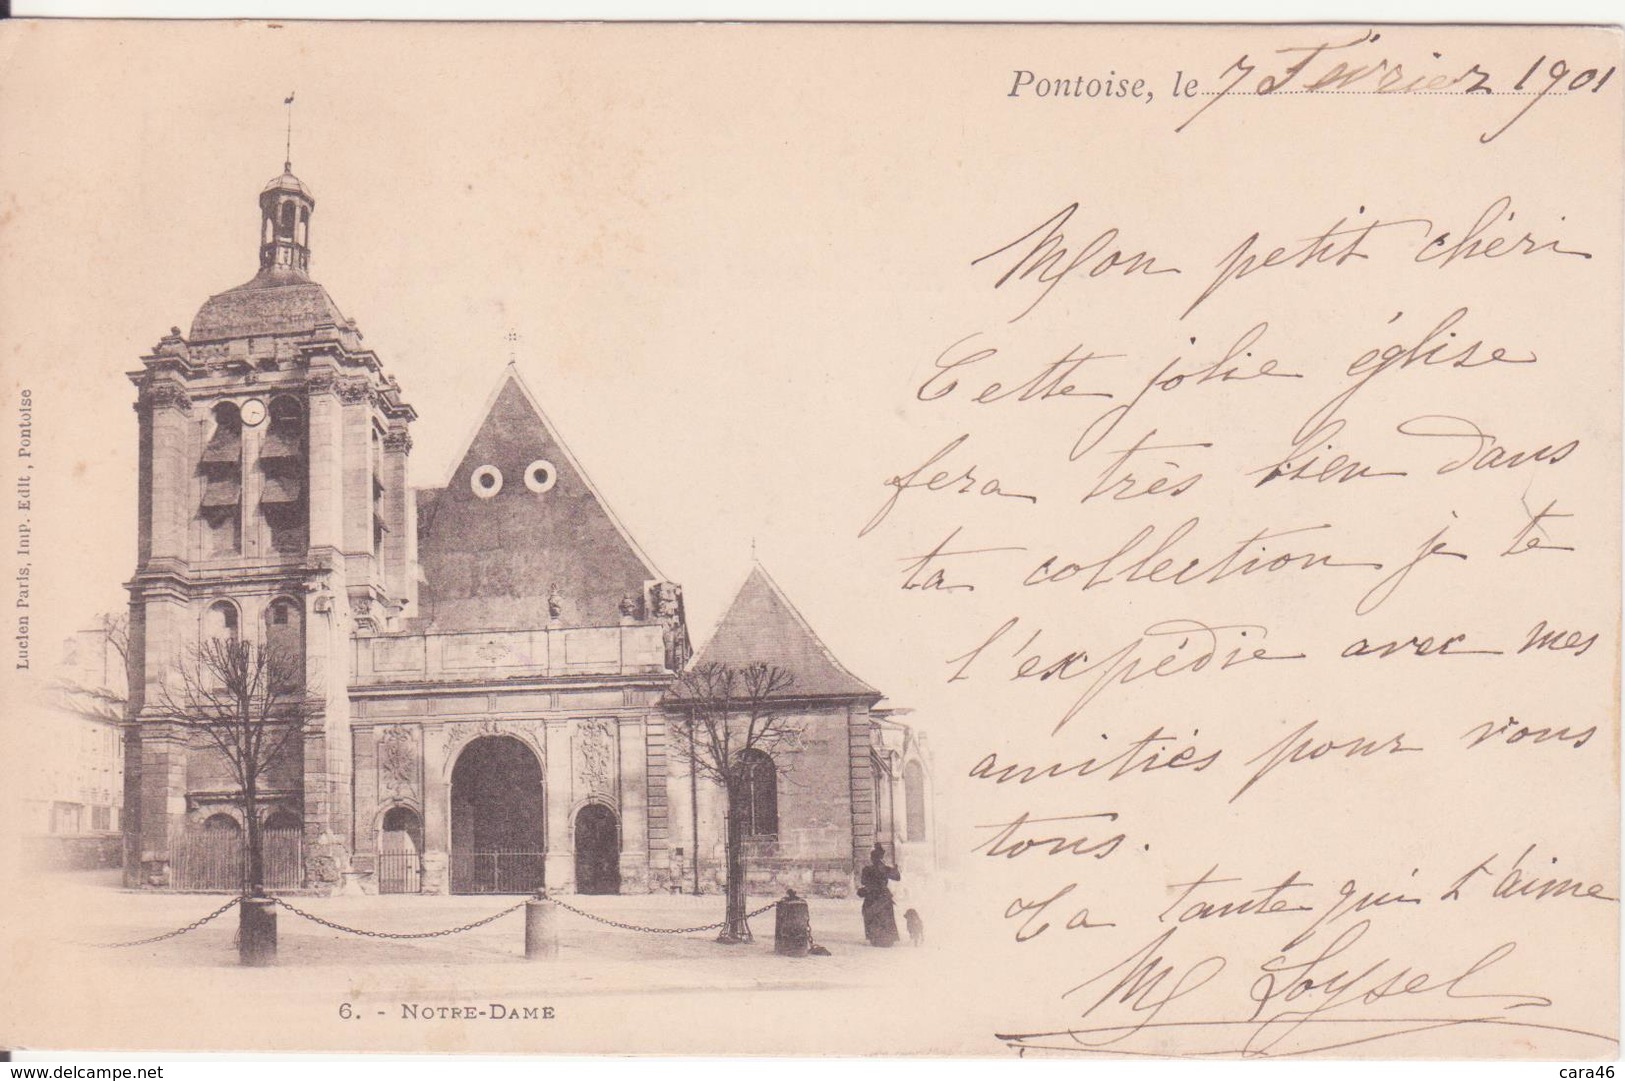 Pontoise, le 7 Février 1901
Mon petit chéri
Cette jolie église
fera très bien dans
ta collection je te
l'expédie avec mes
amitiés pour vous
tous.
Ta tante qui t'aime
M Loysel
Lucien Paris, Imp. Edit, Pontoise
6. - NOTRE-DAME
delcampe.net
cara46